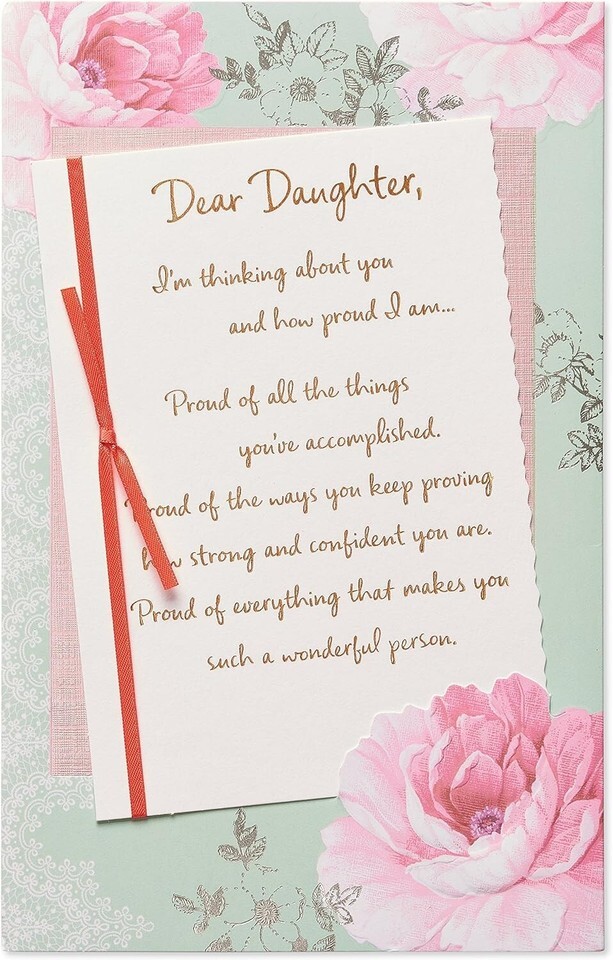 Dear Daughter,
I'm thinking about you
and how proud I am...
Proud of all the things
you've accomplished.
Proud of the ways you keep proving
how strong and confident you are.
Proud of everything that makes you
such a wonderful person.